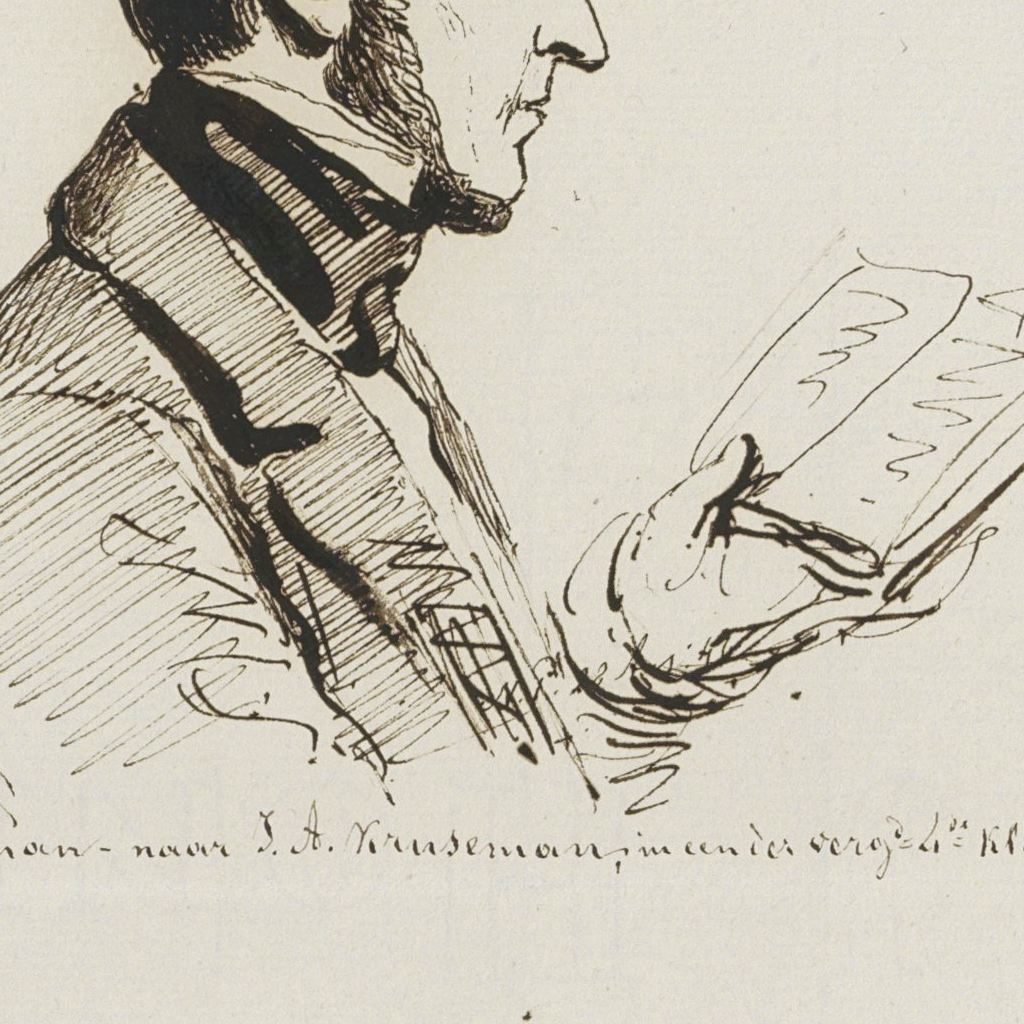 man - naar J. A. Kruseman, in een der vergd = 4de Kl